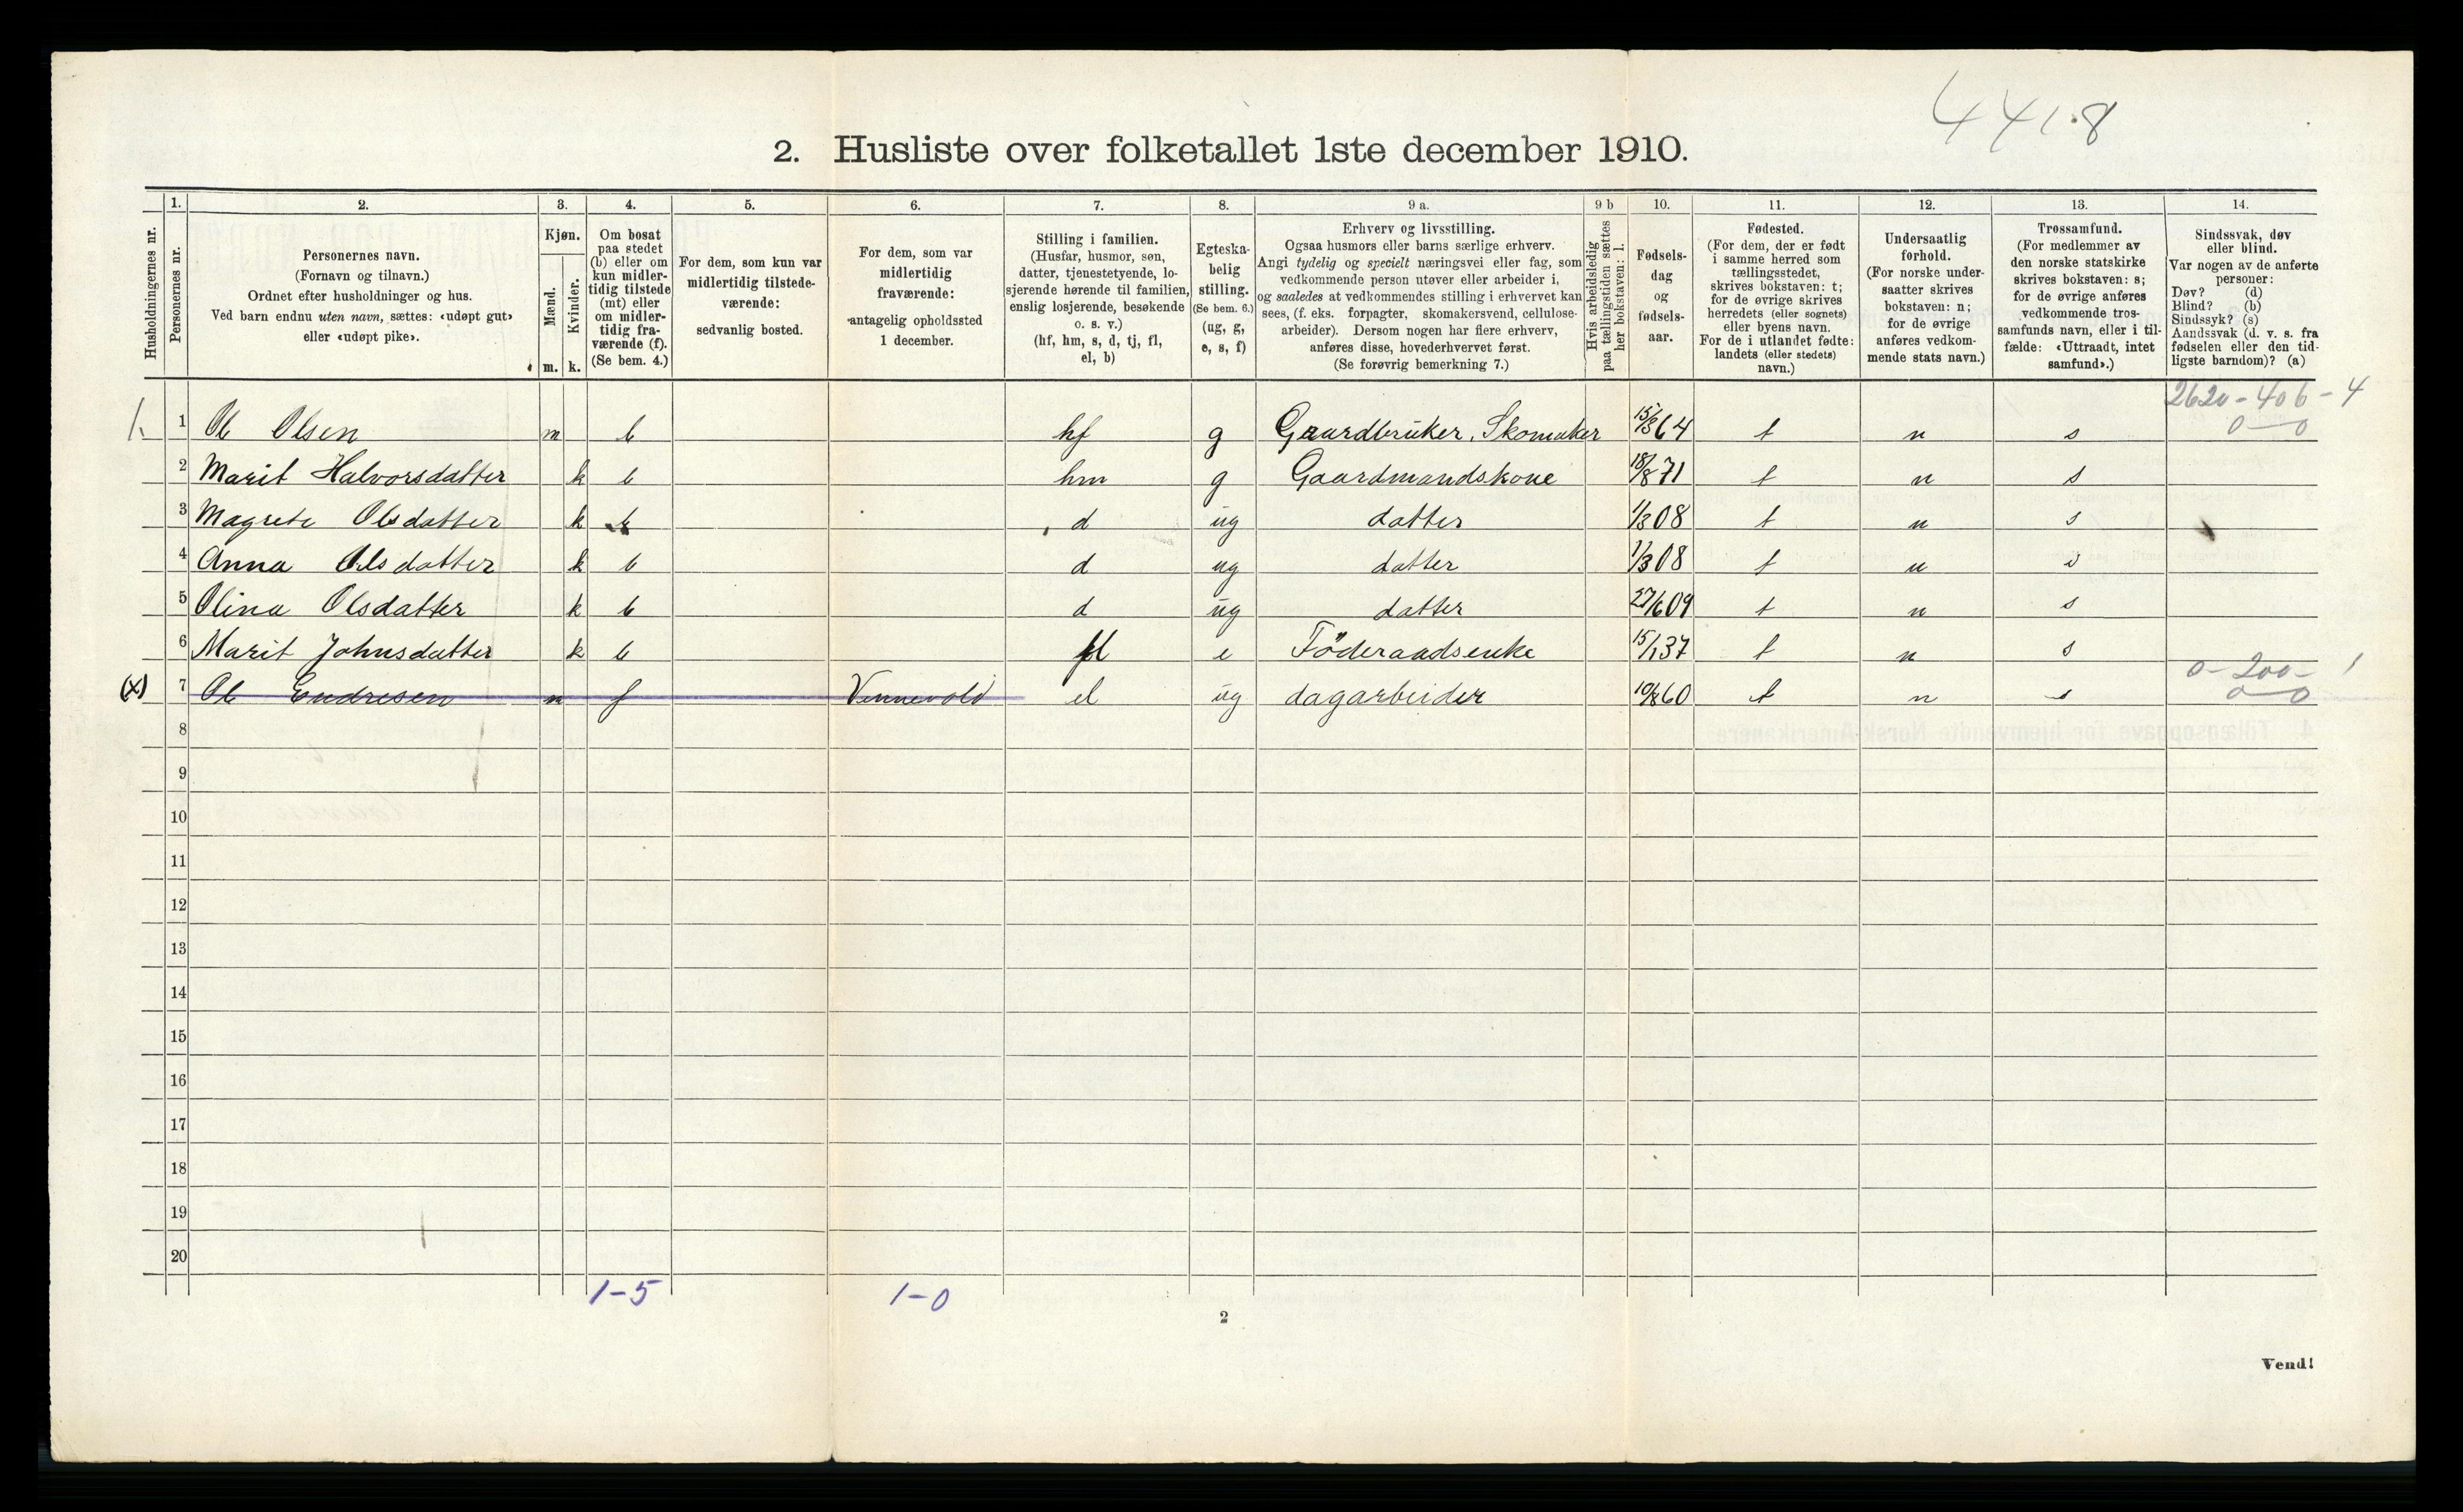 441.8
2. Husliste over folketallet 1ste december 1910.
1. 2. 3. 4. 5. 6. 7. 8. 9 a. 9 b 10. 11. 12. 13. 14.
Husholdningernes nr.
Personernes nr.
Personernes navn.
(Fornavn og tilnavn.)
Ordnet efter husholdninger og hus.
Ved barn endnu uten navn, sættes: «udøpt gut»
eller «udøpt pike».
Kjøn.
Mænd.
Kvinder.
m. k.
Om bosat
paa stedet
(b) eller om
kun midler-
tidig tilstede
(mt) eller
om midler-
tidig fra-
værende (f).
(Se bem. 4.)
For dem, som kun var
midlertidig tilstede-
værende:
sedvanlig bosted.
For dem, som var
midlertidig
fraværende:
antagelig opholdssted
1 december.
Stilling i familien.
(Husfar, husmor, søn,
datter, tjenestetyende, lo-
sjerende hørende til familien,
enslig losjerende, besøkende
o. s. v.)
(hf, hm, s, d, tj, fl,
el, b)
Egteska-
belig
stilling.
(Se bem. 6.)
(ug, g,
e, s, f)
Erhverv og livsstilling.
Ogsaa husmors eller barns særlige erhverv.
Angi tydelig og specielt næringsvei eller fag, som
vedkommende person utøver eller arbeider i,
og saaledes at vedkommendes stilling i erhvervet kan
sees, (f. eks. forpagter, skomakersvend, cellulose-
arbeider). Dersom nogen har flere erhverv,
anføres disse, hovederhvervet først.
(Se forøvrig bemerkning 7.)
Hvis arbeidsledig
paa tællingstiden sættes
her bokstaven: l.
Fødsels-
dag
og
fødsels-
aar.
Fødested.
(For dem, der er født
i samme herred som
tællingsstedet,
skrives bokstaven: t;
for de øvrige skrives
herredets (eller sognets)
eller byens navn.
For de i utlandet fødte:
landets (eller stedets)
navn.)
Undersaatlig
forhold.
(For norske under-
saatter skrives
bokstaven: n;
for de øvrige
anføres vedkom-
mende stats navn.)
Trossamfund.
(For medlemmer av
den norske statskirke
skrives bokstaven: s;
for de øvrige anføres
vedkommende tros-
samfunds navn, eller i til-
fælde: «Uttraadt, intet
samfund».)
Sindssvak, døv
eller blind.
Var nogen av de anførte
personer:
Døv? (d)
Blind? (b)
Sindssyk? (s)
Aandssvak (d. v. s. fra
fødselen eller den tid-
ligste barndom)? (a)
2620-406-4
0-0
1. 1 Ol Olsen m b hf g Gaardbruker, Skomaker 15/3 64 t n s
2 Marit Halvorsdatter k b hm g Gaardmandskone 18/8 71 t n s
3 Magrete Olsdatter k b d ug datter 1/3 08 t n s
4 Anna Olsdatter k b d ug datter 1/3 08 t n s
5 Olina Olsdatter k b d ug datter 27/6 09 t n s
6 Marit Johnsdatter k b fl e Föderaadsenke 15/1 37 t n s
0-200-1
0-0
(x) 7 Ol Endresen m f Vennevold el ug dagarbeider 10/8 60 t n s
8
9
10
11
12
13
14
15
16
17
18
19
20
1-5 1-0
2
Vend!